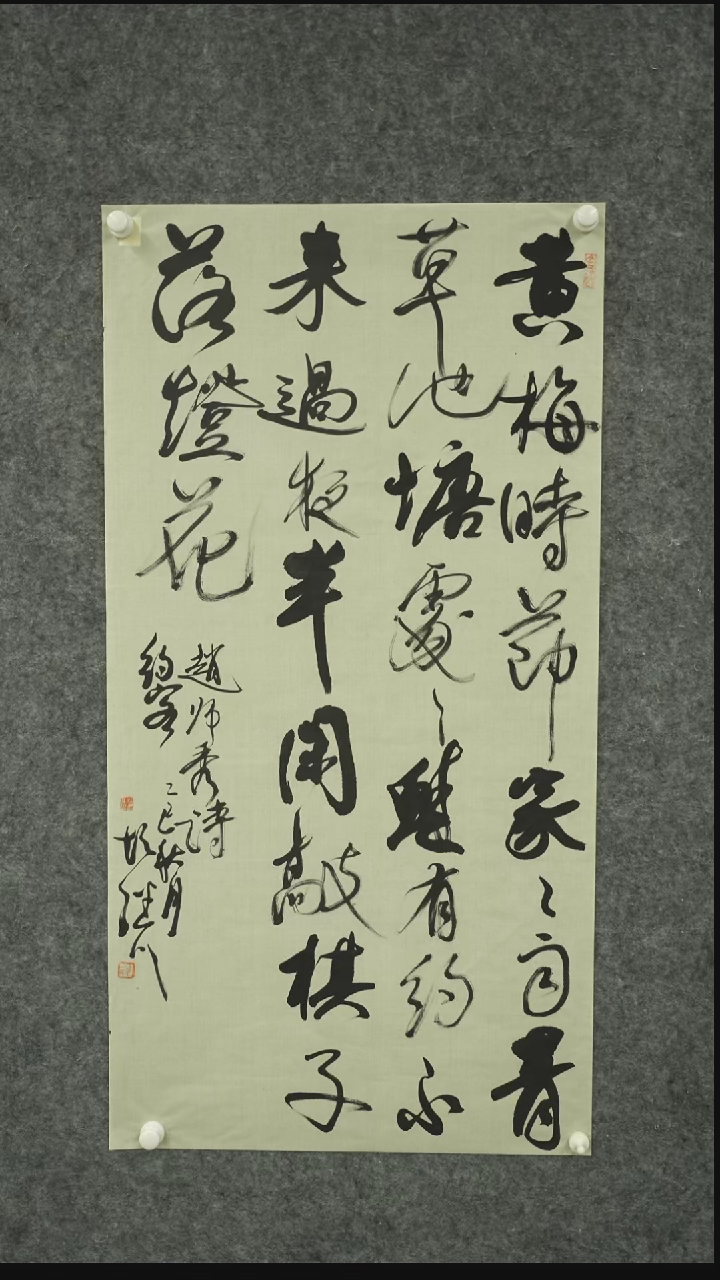 黄梅時節家〻雨青
草池塘處〻蛙有約不
来過夜半闲敲棋子
落燈花
趙师秀詩
約客
乙巳秋月